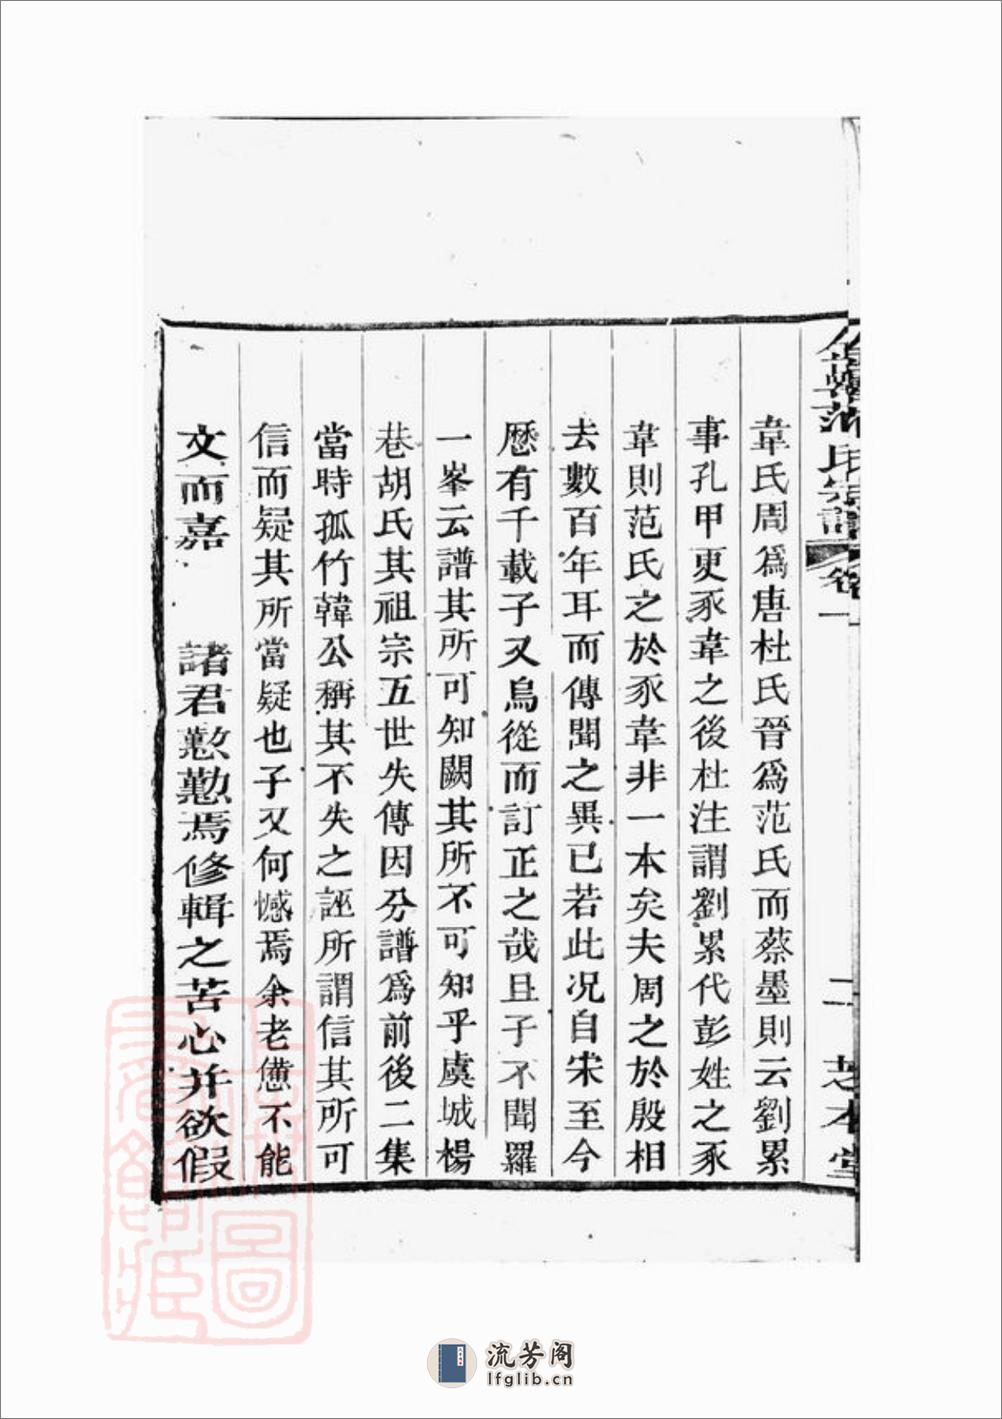 韋氏周爲唐杜氏晉爲范氏而蔡墨則云劉累
事孔甲更豕韋之後杜注謂劉累代彭姓之豕
韋則范氏之於豕韋非一本矣夫周之於殷相
去數百年耳而傳聞之異已若此况自宋至今
歷有千載子又烏從而訂正之哉且子不聞羅
一峯云譜其所可知闕其所不可知乎虞城楊
巷胡氏其祖宗五世失傳因分譜爲前後二集
當時孤竹韓公稱其不失之誣所謂信其所可
信而疑其所當疑也子又何憾焉余老憊不能
文而嘉 諸君懃懃焉修輯之苦心并欲假
范氏宗譜 卷一 二
本堂
流芳阁
lfglib.cn